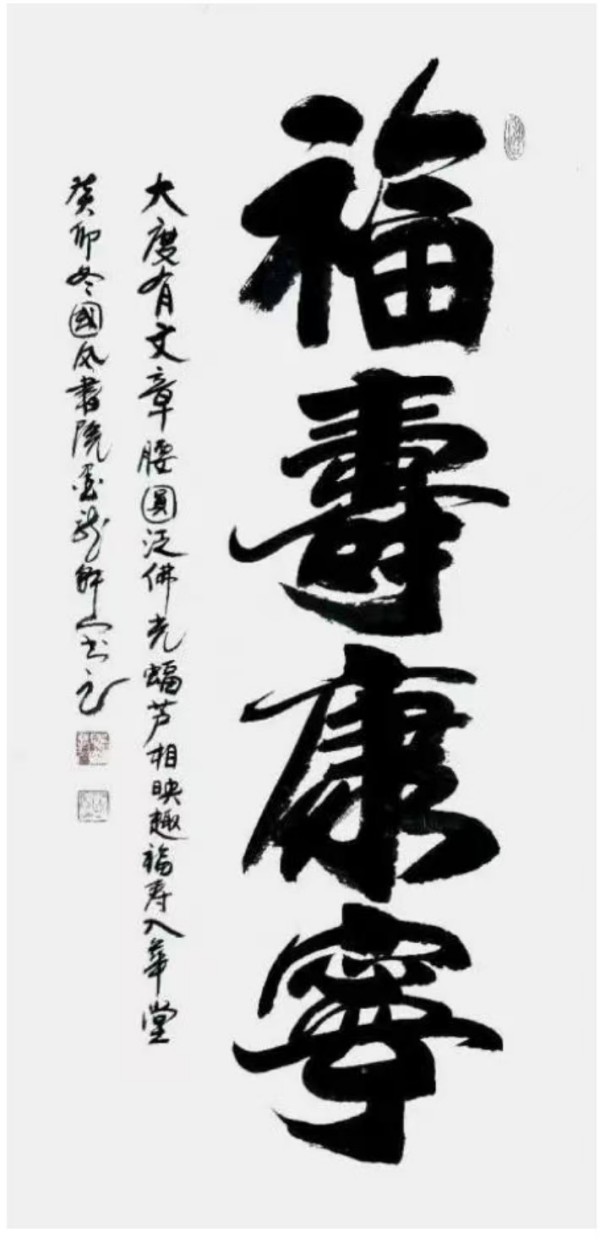 福壽康寧
大度有文章腰圓泛佛光蝠芦相映趣福寿入華堂
癸卯冬國风書院墨龍軒之